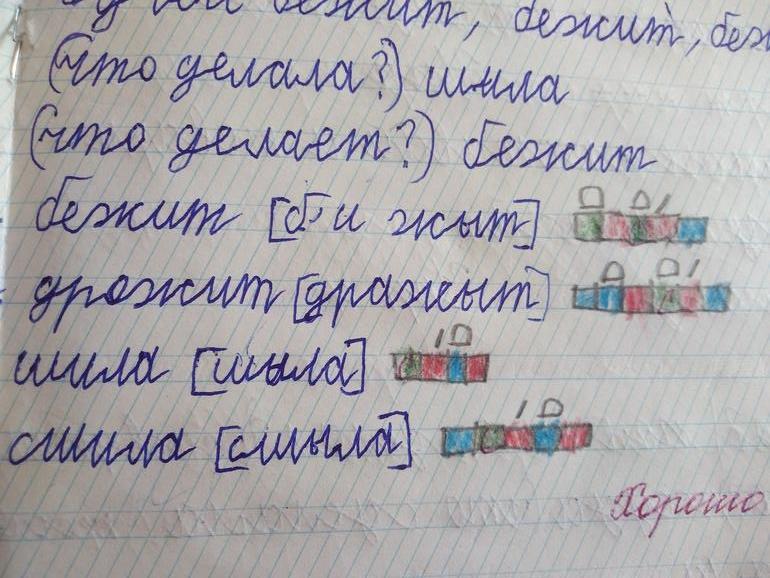 бежит, бежит, беж
(что делала?) шила
(что делает?) бежит
бежит [б'и жыт]
дрожит [дражыт]
шила [шыла]
сшила [сшыла]
Хорошо